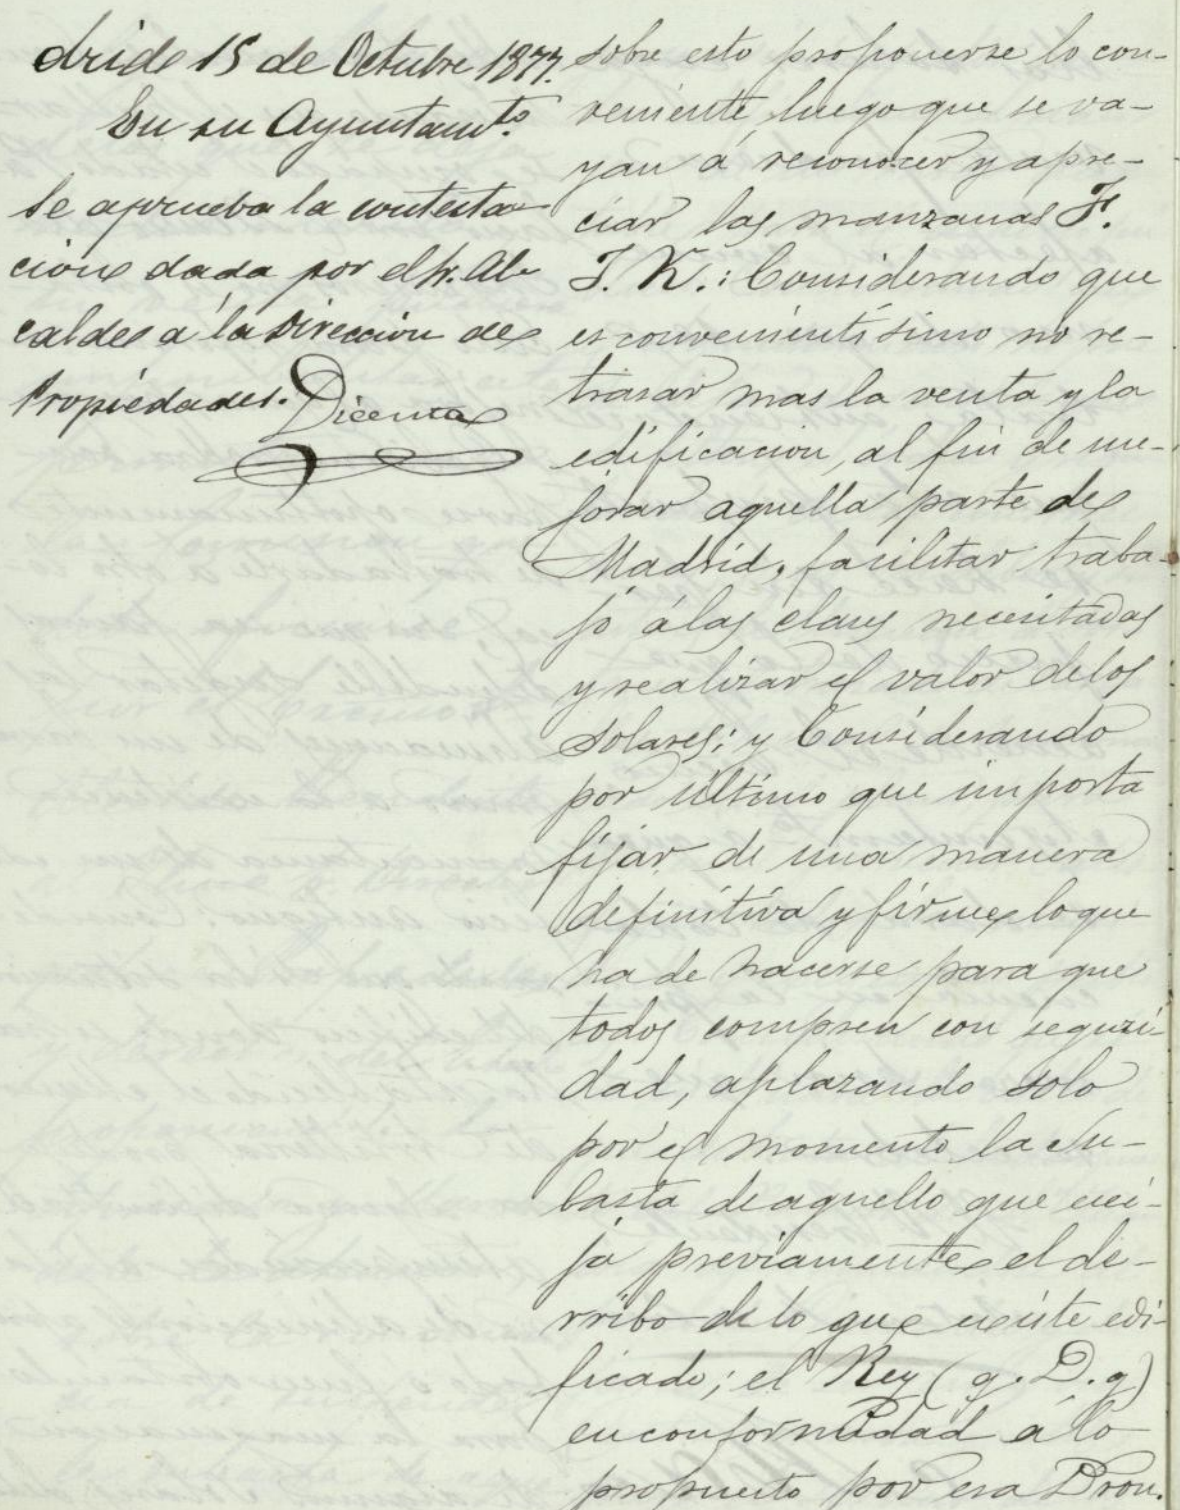 drid 15 de Octubre 1877.
En su Ayuntamto.
Se aprueba la contesta
cion dada por el Sr. Al-
calde á la Dirección de
Propiedades. Dicenta
sobre esto proponerse lo con-
veniente luego que se va-
yan á reconocer y apre-
ciar las manzanas F.
J. K.: Considerando que
es convenientísimo no re-
trasar mas la venta y la
edificacion, al fin de me-
jorar aquella parte de
Madrid, facilitar traba-
jo á las clases necesitadas
y realizar el valor de los
solares; y Considerando
por último que importa
fijar de una manera
definitiva y firme lo que
ha de hacerse para que
todos compren con seguri-
dad, aplazando solo
por el momento la Su-
basta de aquello que exi-
ja previamente el de-
rribo de lo que existe edi-
ficado; el Rey (q. D. g)
en conformidad á lo
propuesto por esa Dron.